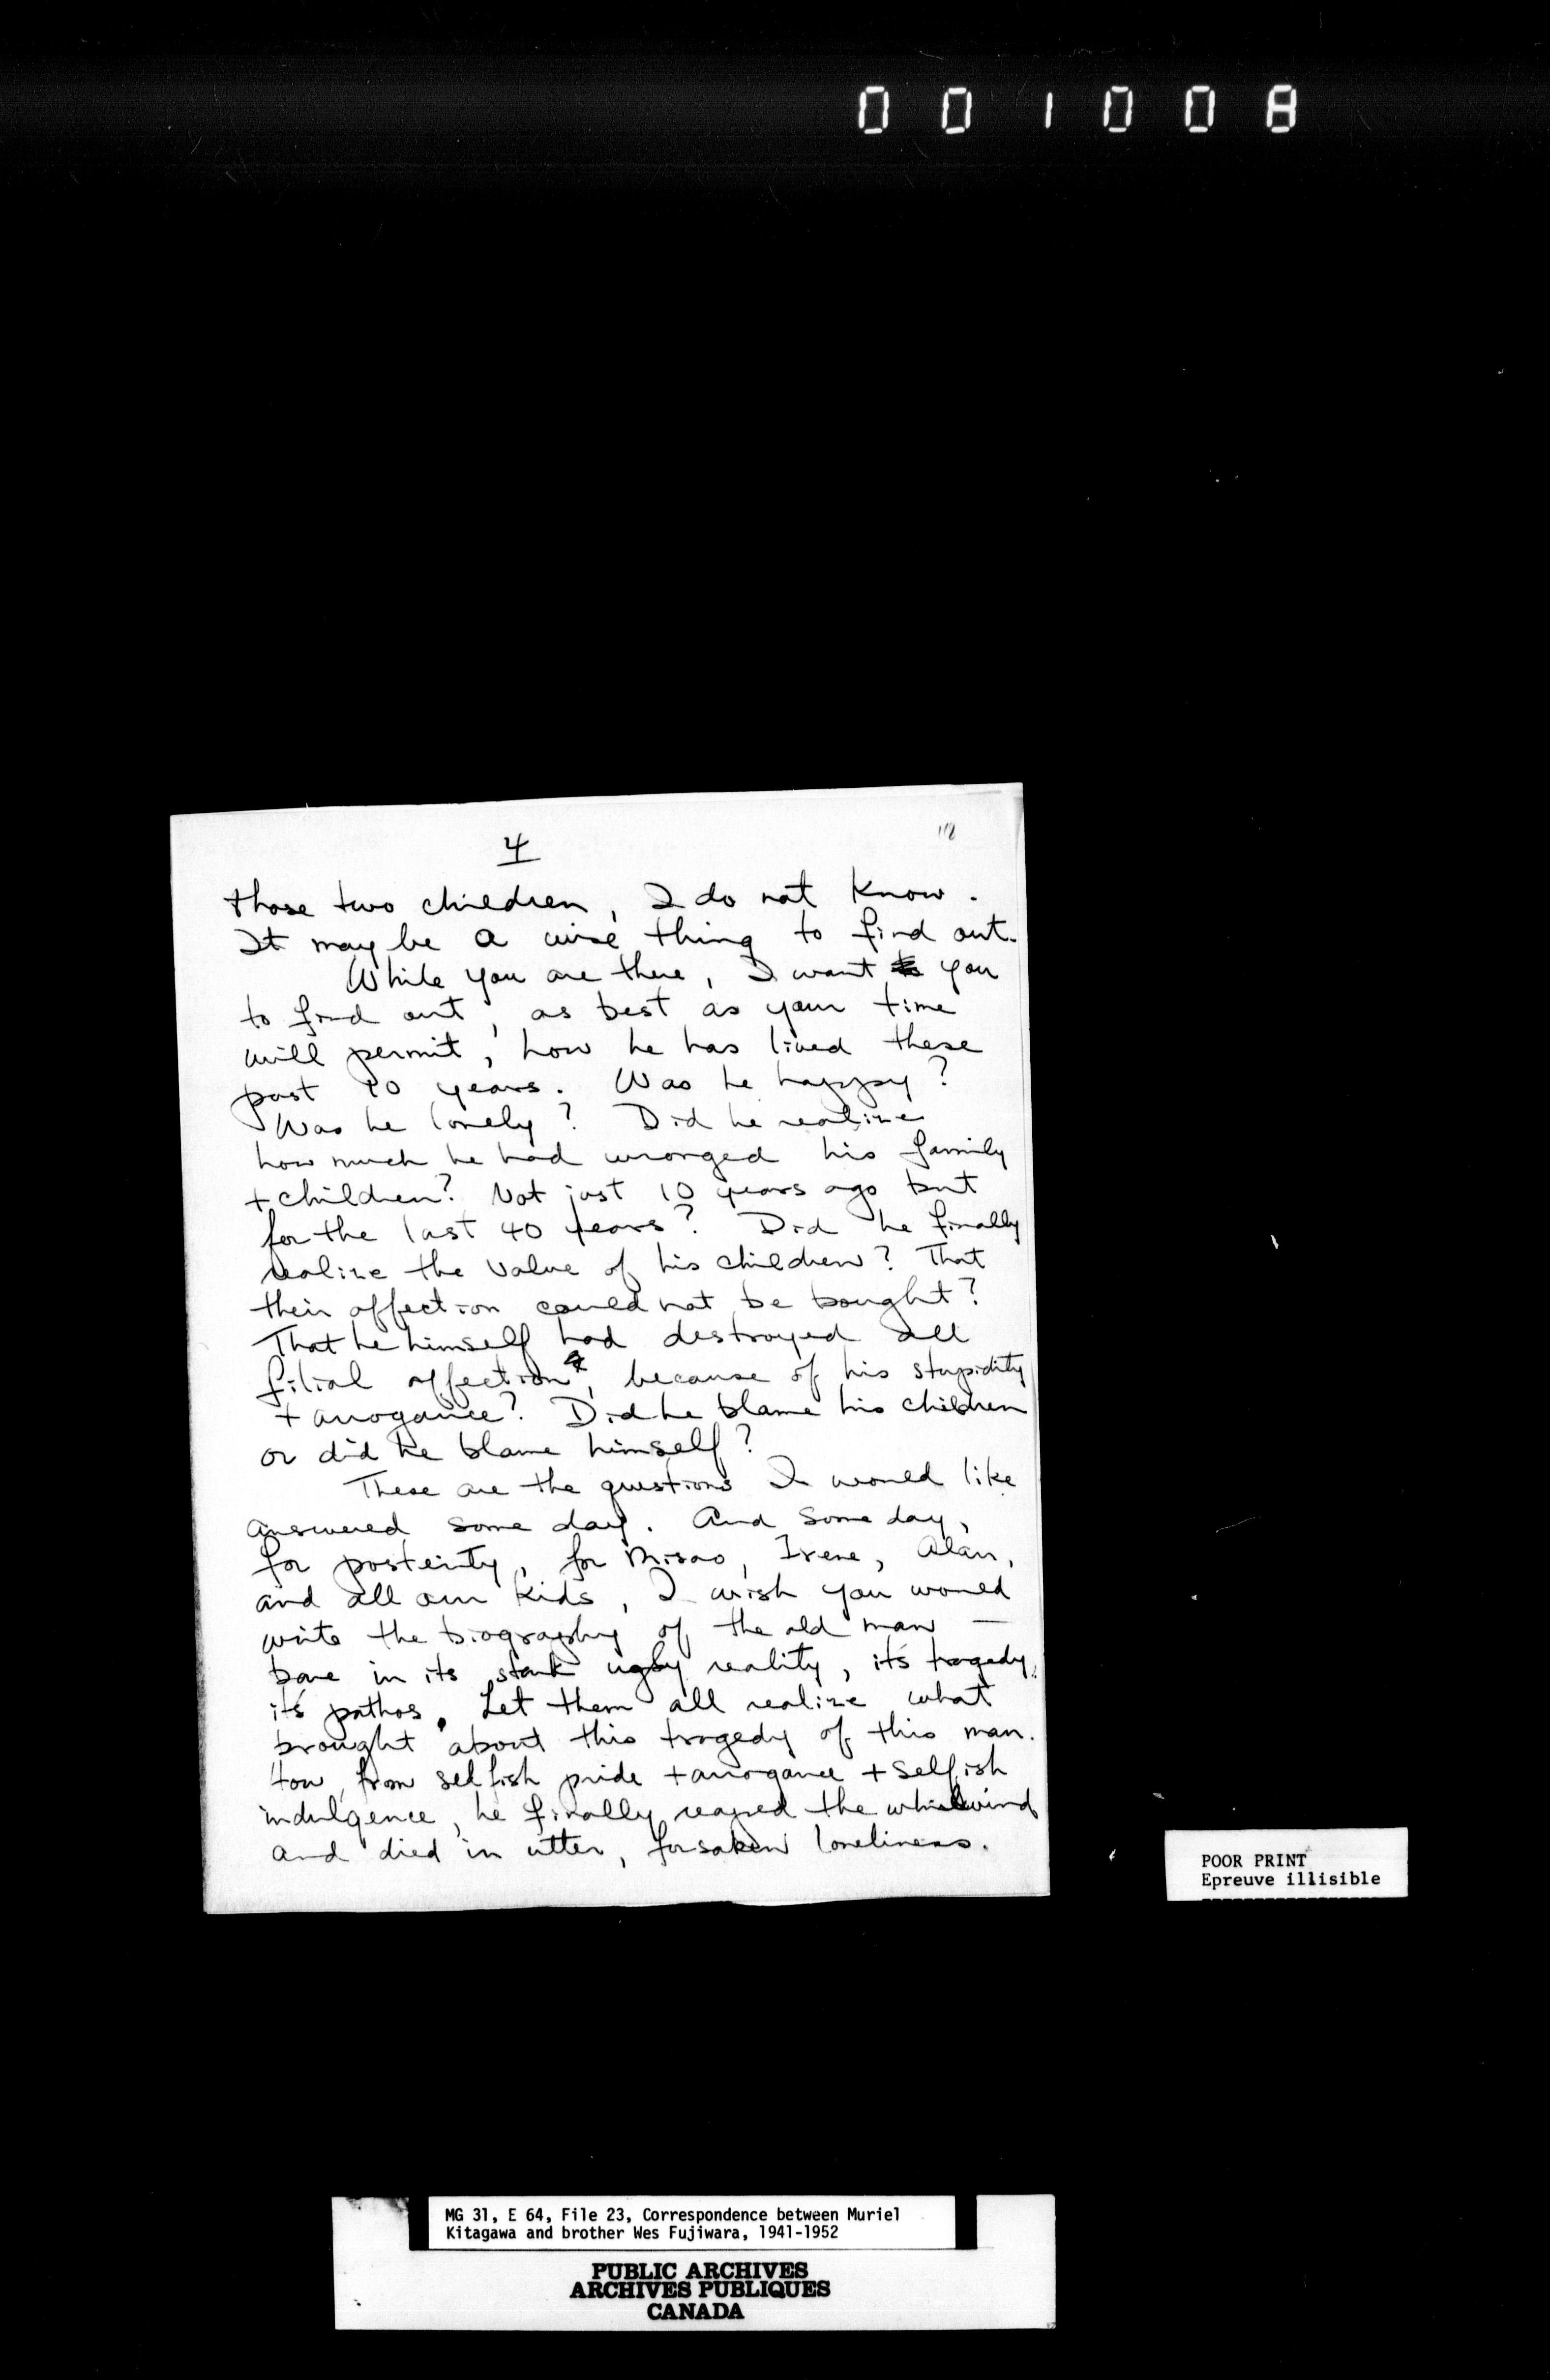 001008
4
those two children, I do not know.
It may be a wise thing to find out.
While you are there, I want you
to find out, as best as your time
will permit, how he has lived these
past 10 years. Was he happy?
Was he lonely? Did he realize
how much he had wronged his family
+ children? Not just 10 years ago but
for the last 40 years? Did he finally
realize the value of his children? That
their affection could not be bought?
That he himself had destroyed all
filial affection, because of his stupidity
+ arrogance? Did he blame his children
or did he blame himself?
These are the questions I would like
answered some day. And some day,
for posterity, for Misao, Irene, Alan,
and all our kids, I wish you would
write the biography of the old man —
bare in its stark ugly reality, it's tragedy,
it's pathos. Let them all realize what
brought about this tragedy of this man.
How, from selfish pride + arrogance + selfish
indulgence, he finally reaped the whirlwind
and died in utter, forsaken loneliness.
POOR PRINT
Epreuve illisible
MG 31, E 64, File 23, Correspondence between Muriel
Kitagawa and brother Wes Fujiwara, 1941-1952
PUBLIC ARCHIVES
ARCHIVES PUBLIQUES
CANADA